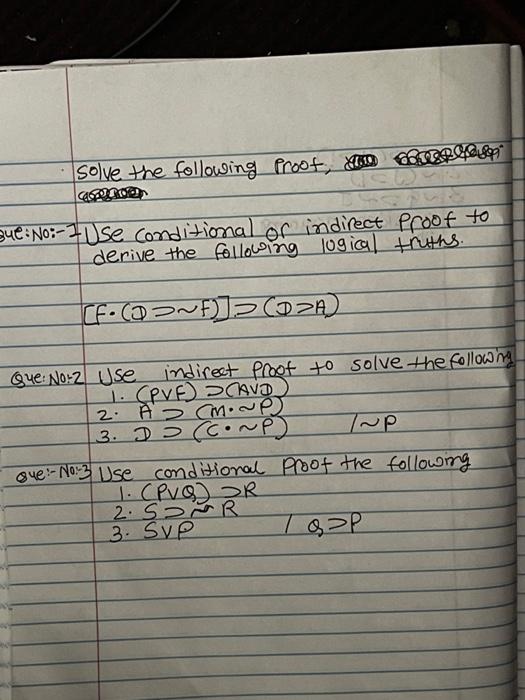 Solve the following Proof,
Que:No:-1 Use conditional or indirect Proof to
derive the following logical truths.
[F·(D⊃~F)]⊃(D⊃A)
Que:No:-2 Use indirect Proof to solve the following
1. (PVF)⊃(AVD)
2. A⊃(M·~P)
3. D⊃(C·~P) /~P
Que:-No:-3 Use conditional Proof the following
1. (PVQ)⊃R
2. S⊃~R
3. SVP / Q⊃P